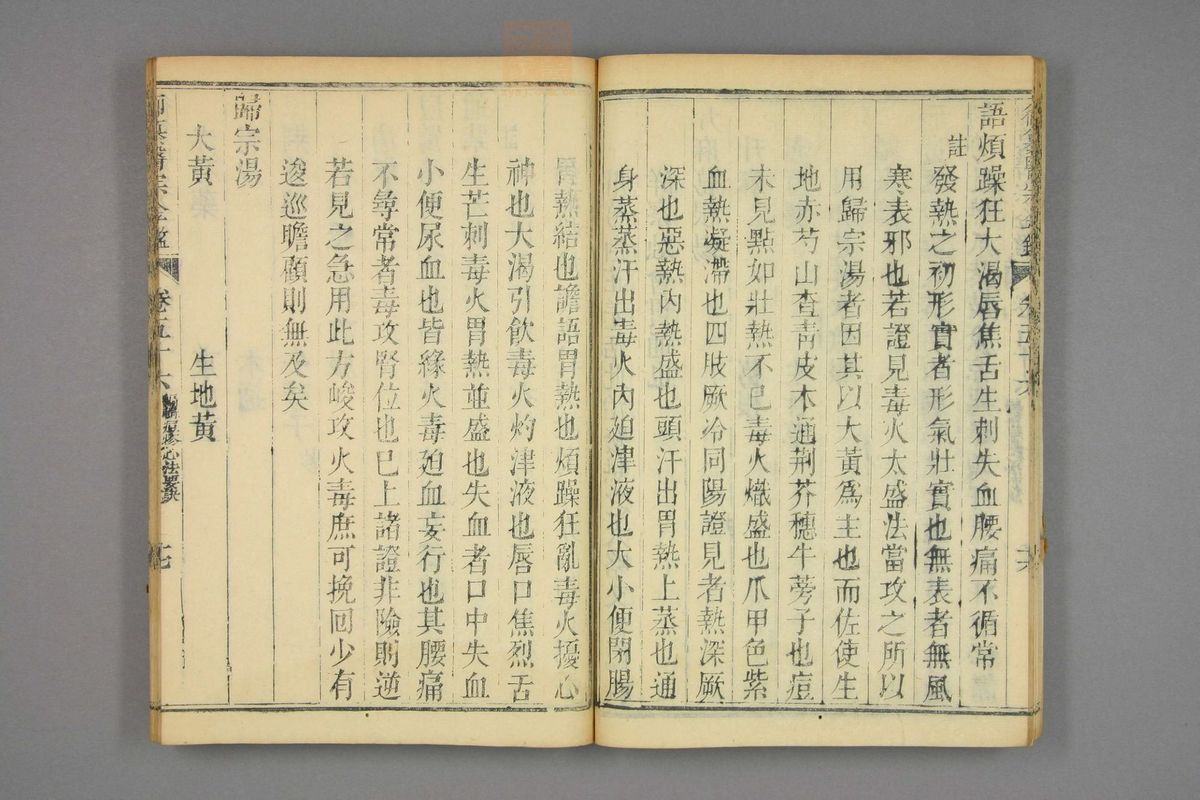 語煩躁狂大渴唇焦舌生刺失血腰痛不循常
註
發熱之初形實者形氣壯實也無表者無風
寒表邪也若證見毒火太盛法當攻之所以
用歸宗湯者因其以大黃爲主也而佐使生
地赤芍山查靑皮木通荆芥穗牛蒡子也痘
未見點如壯熱不已毒火熾盛也爪甲色紫
血熱凝滯也四肢厥冷同陽證見者熱深厥
深也惡熱內熱盛也頭汗出胃熱上蒸也通
身蒸蒸汗出毒火內廹津液也大小便閉腸
胃熱結也譫語胃熱也煩躁狂亂毒火擾心
神也大渴引飮毒火灼津液也唇口焦烈舌
生芒刺毒火胃熱並盛也失血者口中失血
小便尿血也皆緣火毒廹血妄行也其腰痛
不尋常者毒攻腎位也已上諸證非險則逆
若見之急用此方峻攻火毒庶可挽回少有
逡巡瞻顧則無及矣
歸宗湯
大黃 生地黃
御纂醫宗金鑑 卷五十六 心法要訣 七